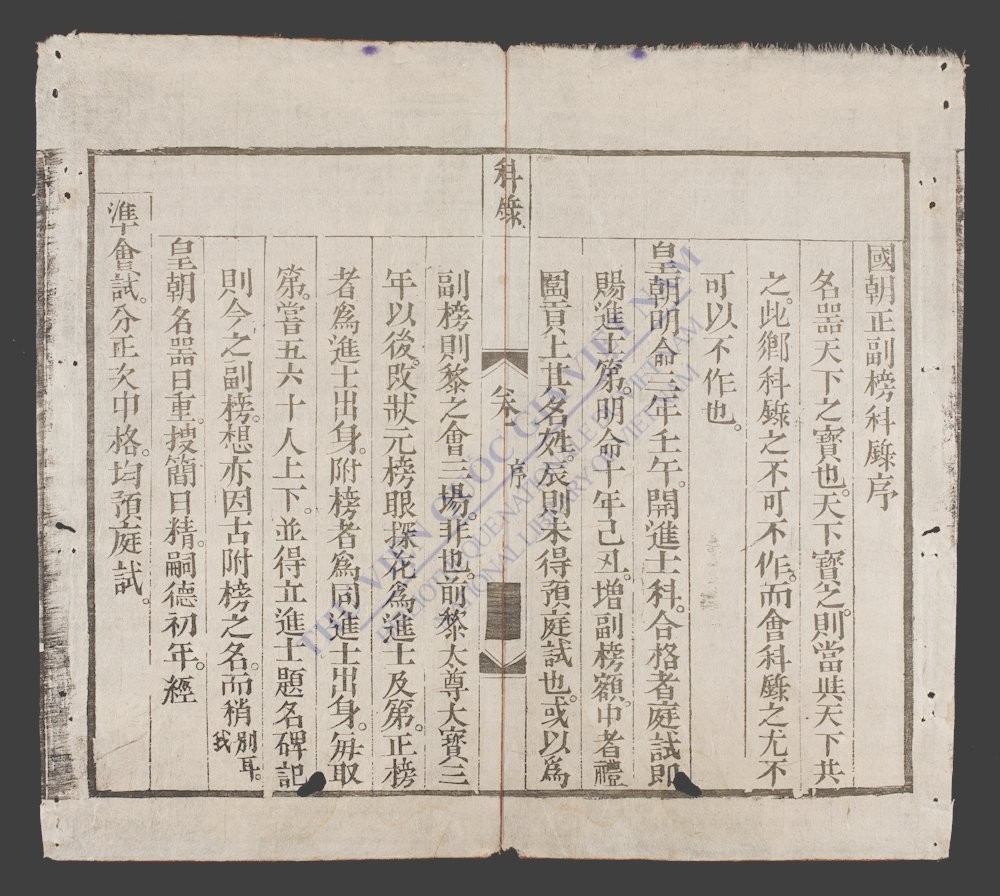 國朝正副榜科錄序
名器天下之寶也。天下寶之。則當與天下共
之。此鄉科錄之不可不作。而會科錄之尤不
可以不作也。
皇朝明命三年壬午。開進士科。合格者庭試即
賜進士第。明命十年己丑。增副榜額。中者禮
圍貢上其名姓。辰則未得預庭試也。或以爲
科錄
卷
序
副榜則黎之會三場。非也。前黎太尊大寶三
年以後。改狀元榜眼探花爲進士及第。正榜
者爲進士出身。附榜者爲同進士出身。每取
第。嘗五六十人上下。並得立進士題名碑記
則今之副榜。想亦因古附榜之名。而稍別耳。我
皇朝名器日重。搜簡日精。嗣德初年。經
準會試。分正次中格。均預庭試。
THƯ VIỆN QUỐC GIA VIỆT NAM
BIBLIOTHEQUE NATIONALE DU VIETNAM
NATIONAL LIBRARY OF VIETNAM